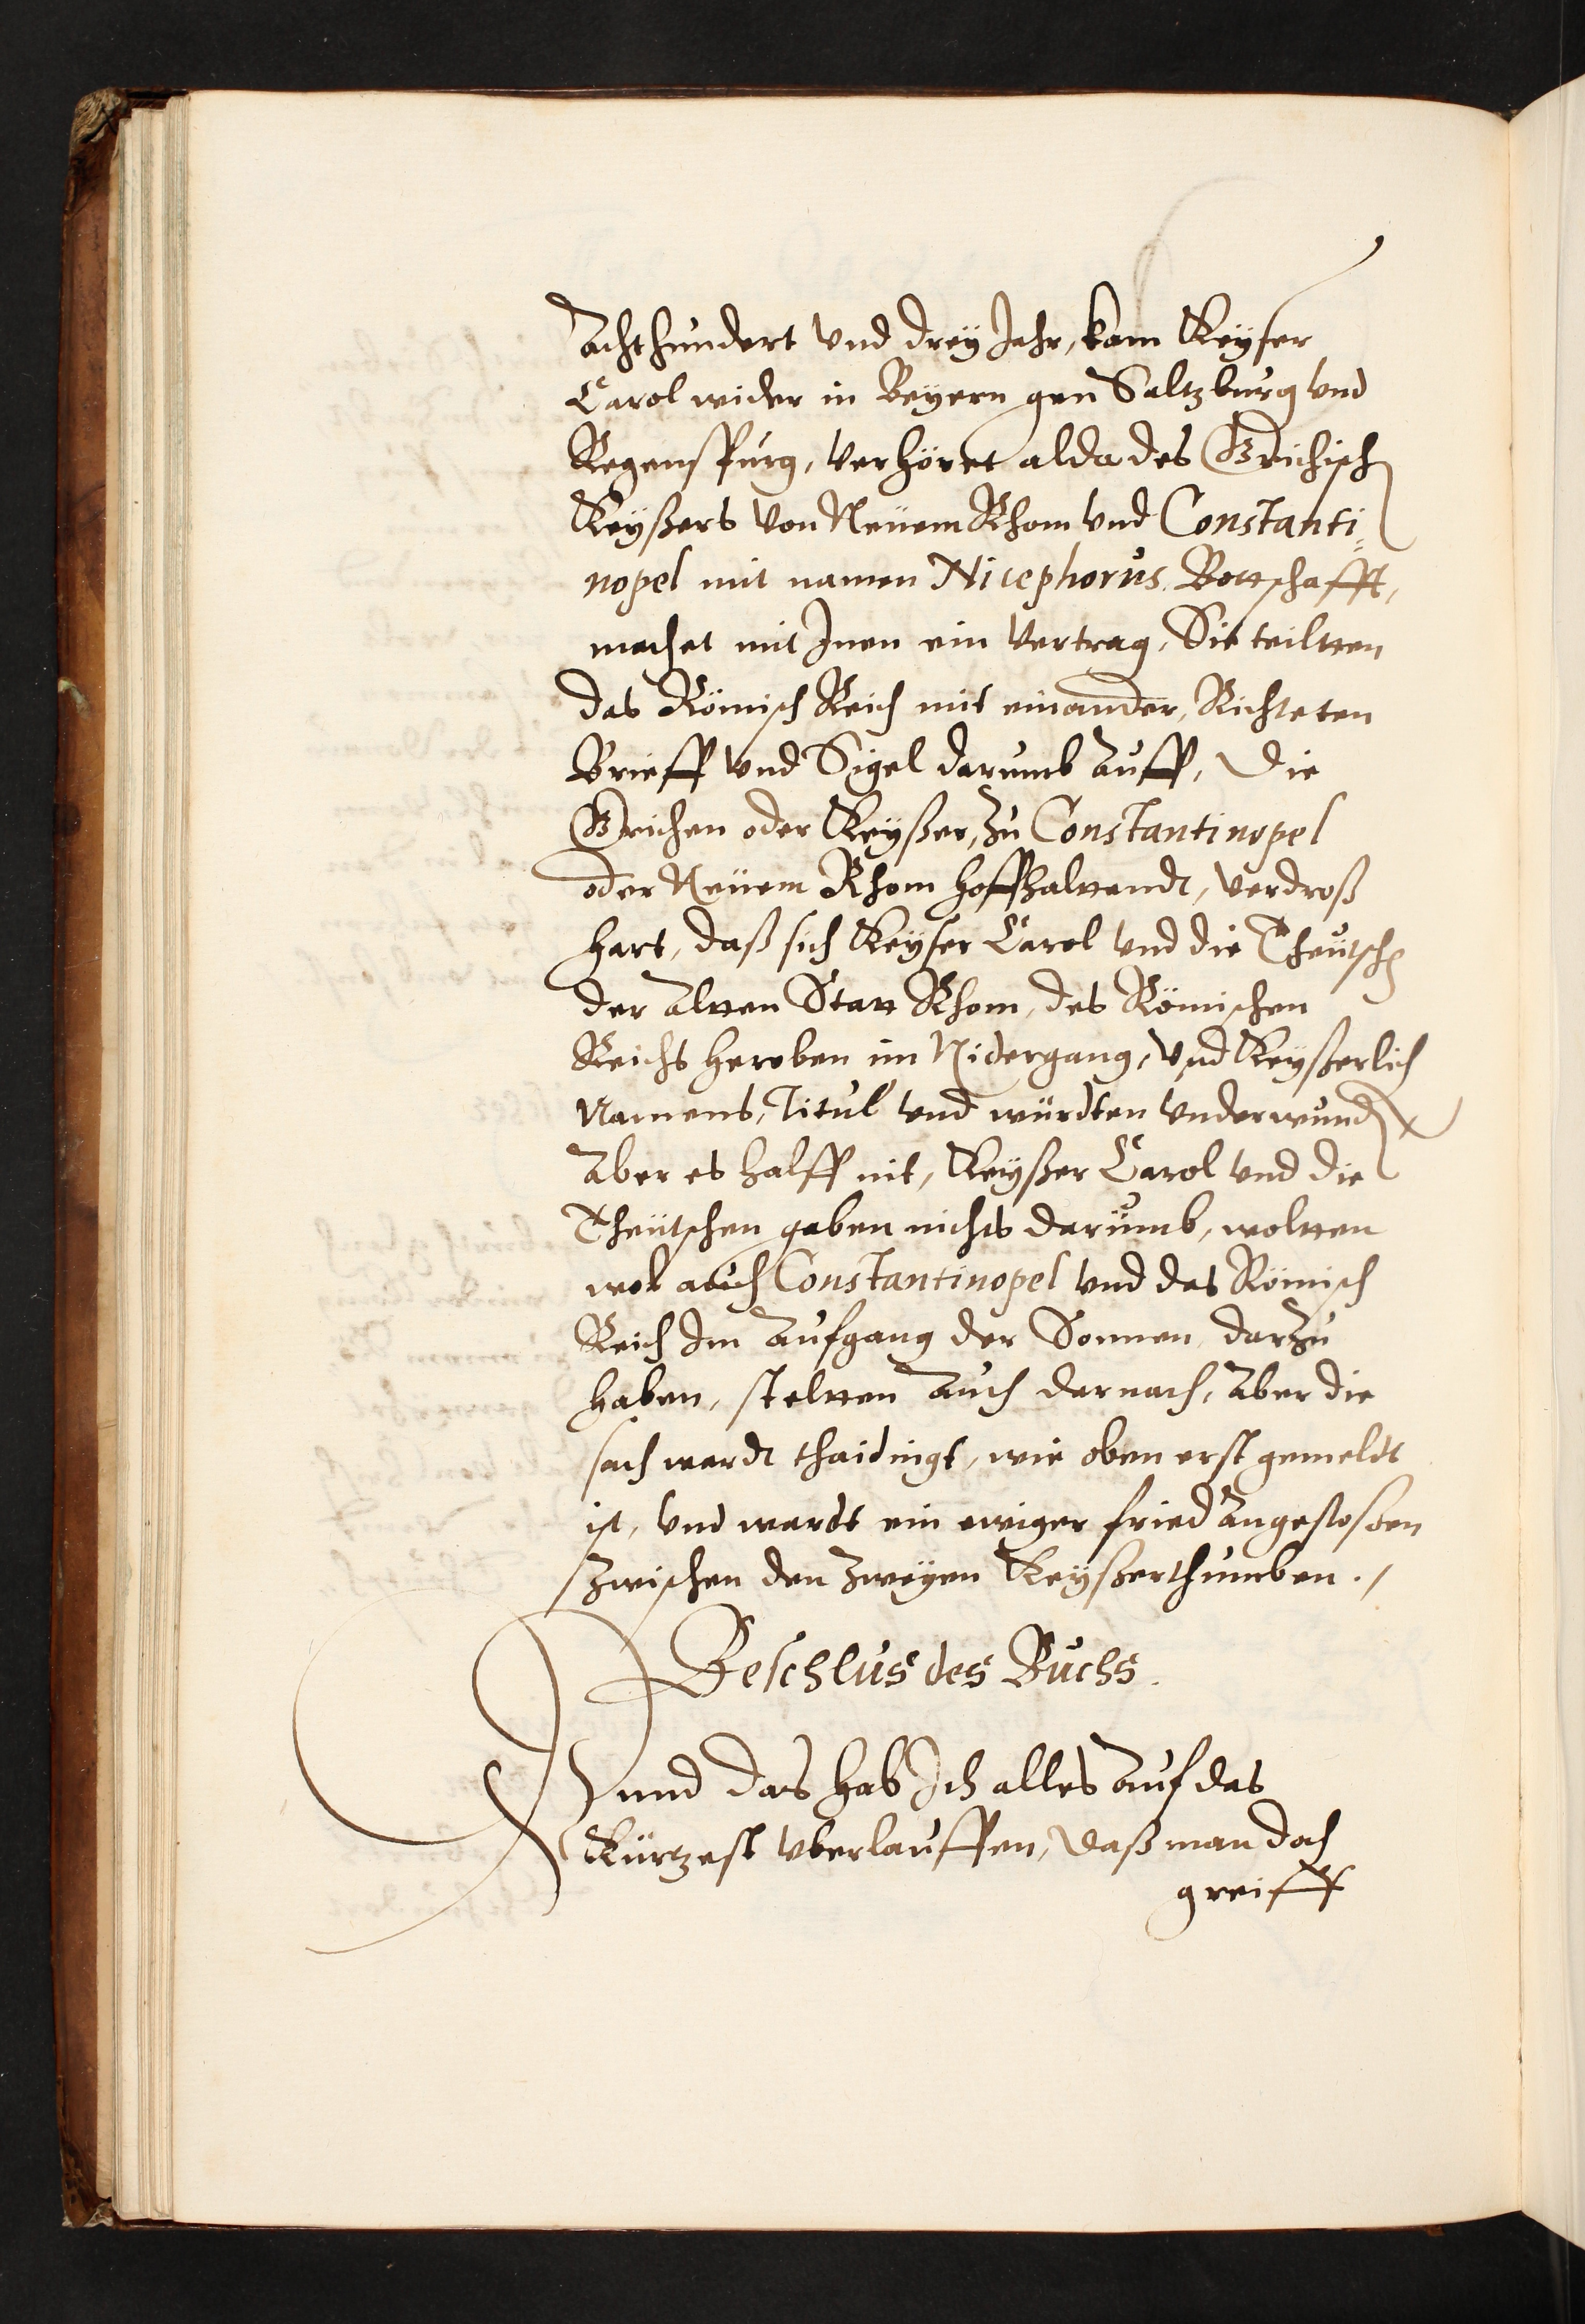 Achthundert vnd drey Jahr, kam Keyser
Carol wider in Beyern gen Saltzburg vnd
Regenspurg, verhöret alda des Grichisch
Keyßers von Neüem Rhom vnd Constanti=
nopel mit namen Nicephorus. Bottschafft,
machet mit Jnen ein Vertrag, Sie teiltten
das Römisch Reich mit einander, Richteten
Brieff vnd Sigel darumb auff, Die
Grichen oder Keyßer, zu Constantinopel
oder Neüem Rhom hoffhalttendt, verdroß
hart, daß sich Keyser Carol vnd die Theutschen
der altten Statt Rhom, des Römischen
Reichs heroben im Nidergang, vnd Keyßerlich
Namens, Titul vnd würdten vnderwunden
Aber es halff nit, Keyßer Carol vnd die
Theütschen gaben nichts darumb, woltten
wol auch Constantinopel vnd das Römisch
Reich Im Aufgang der Sonnen, darzu
haben, steltten auch darnach, Aber die
sach wardt thaidingt, wie oben erst gemeldt
ist, vnd wardt ein ewiger fried angestosßen
zwischen den zweyen Keyßerthumben./
Beschlus des Buchs.
Vnnd das hab Ich alles auf das
Kürtzest vberlauffen, daß man doch
greiff